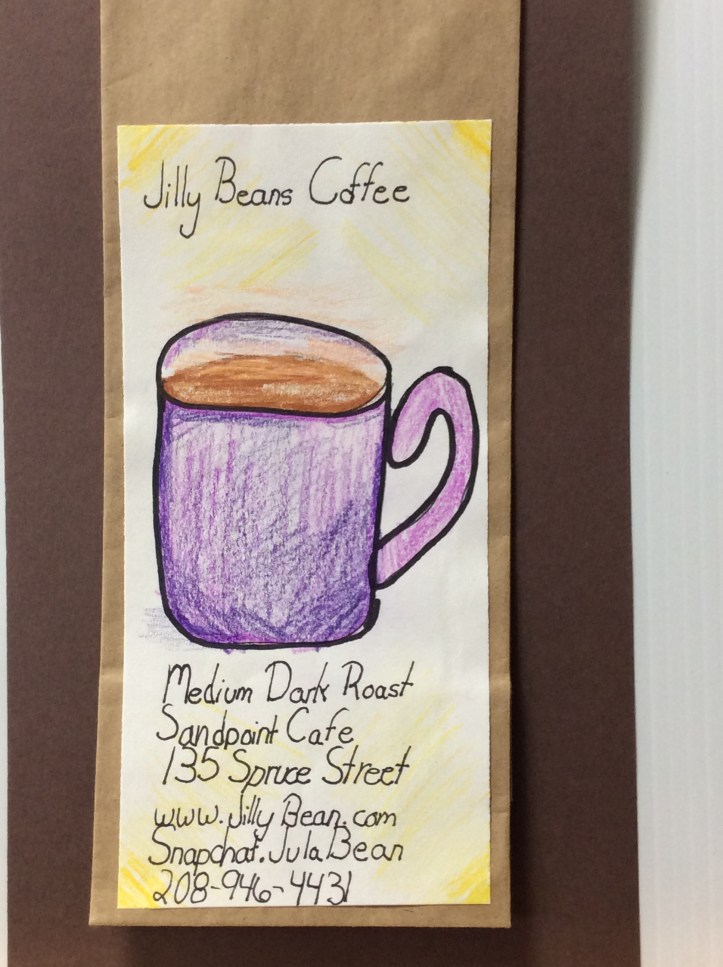 Jilly Beans Coffee
Medium Dark Roast
Sandpoint Cafe
135 Spruce Street
www.Jilly Bean.com
Snapchat.JulaBean
208-946-4431